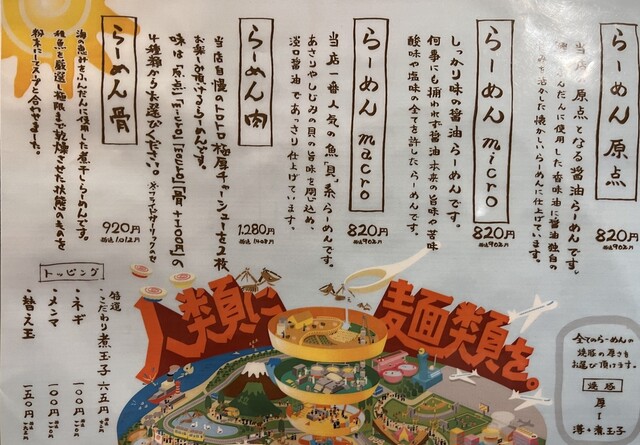 らーめん 原点
当店の原点となる醤油らーめんです。
んだんに使用した香味油に醤油独自の
みを活かした懐かしいらーめんに仕上げています。
820円
税込902円
らーめん micro
しっかり味の醤油らーめんです。
何事にも捕われず醤油本来の旨味や苦味
酸味や塩味の全てを許したらーめんです。
820円
税込902円
らーめん macro
当店一番人気の魚貝系らーめんです。
あさりやしじみの貝の旨味を閉じ込め、
淡口醤油であっさり仕上げています。
820円
税込902円
らーめん 肉
当店自慢のトロトロ極厚チャーシューを2枚
お楽しみ頂けるらーめんです。
味は「原点」「micro」「macro」「骨+100円」の
4種類からお選びください。
1,280円
税込1408円
らーめん 骨
海の恵みをふんだんに使用した煮干しらーめんです。
種魚を厳選し極限まで乾燥させた状態のものを
粉末にてスープと合わせました。
920円
税込1,012円
トッピング
特選こだわり煮玉子 六五円
・ネギ 一〇〇円
・メンマ 一〇〇円
・替え玉 一五〇円
人類に麺類を。
全てのらーめんの
焼豚の厚さを
お選び頂けます。
焼豚
厚
薄・煮玉子